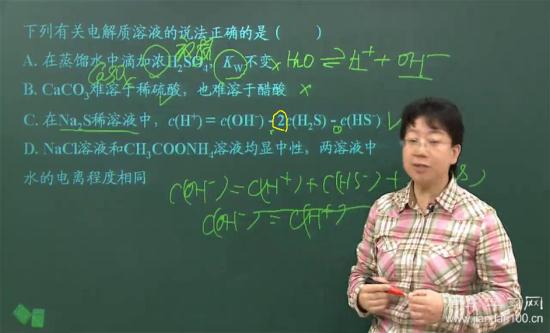 下列有关电解质溶液的说法正确的是（　）
A. 在蒸馏水中滴加浓H₂SO₄，K_W不变 × H₂O ⇌ H⁺ + OH⁻
B. CaCO₃难溶于稀硫酸，也难溶于醋酸 ×
C. 在Na₂S稀溶液中，c(H⁺)＝c(OH⁻)-2c(H₂S)-c(HS⁻) √
D. NaCl溶液和CH₃COONH₄溶液均显中性，两溶液中
水的电离程度相同
c(OH⁻) = c(H⁺) + c(HS⁻) +
c(OH⁻) = c(H⁺)
www.jianzan100.cn